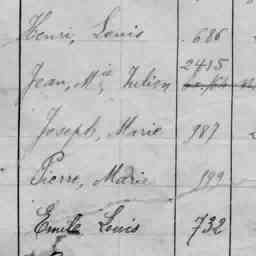 Henri, Louis 686
2415
Jean, Mie, Julien
Joseph, Marie 987
Pierre, Marie 199
Emile Louis 732